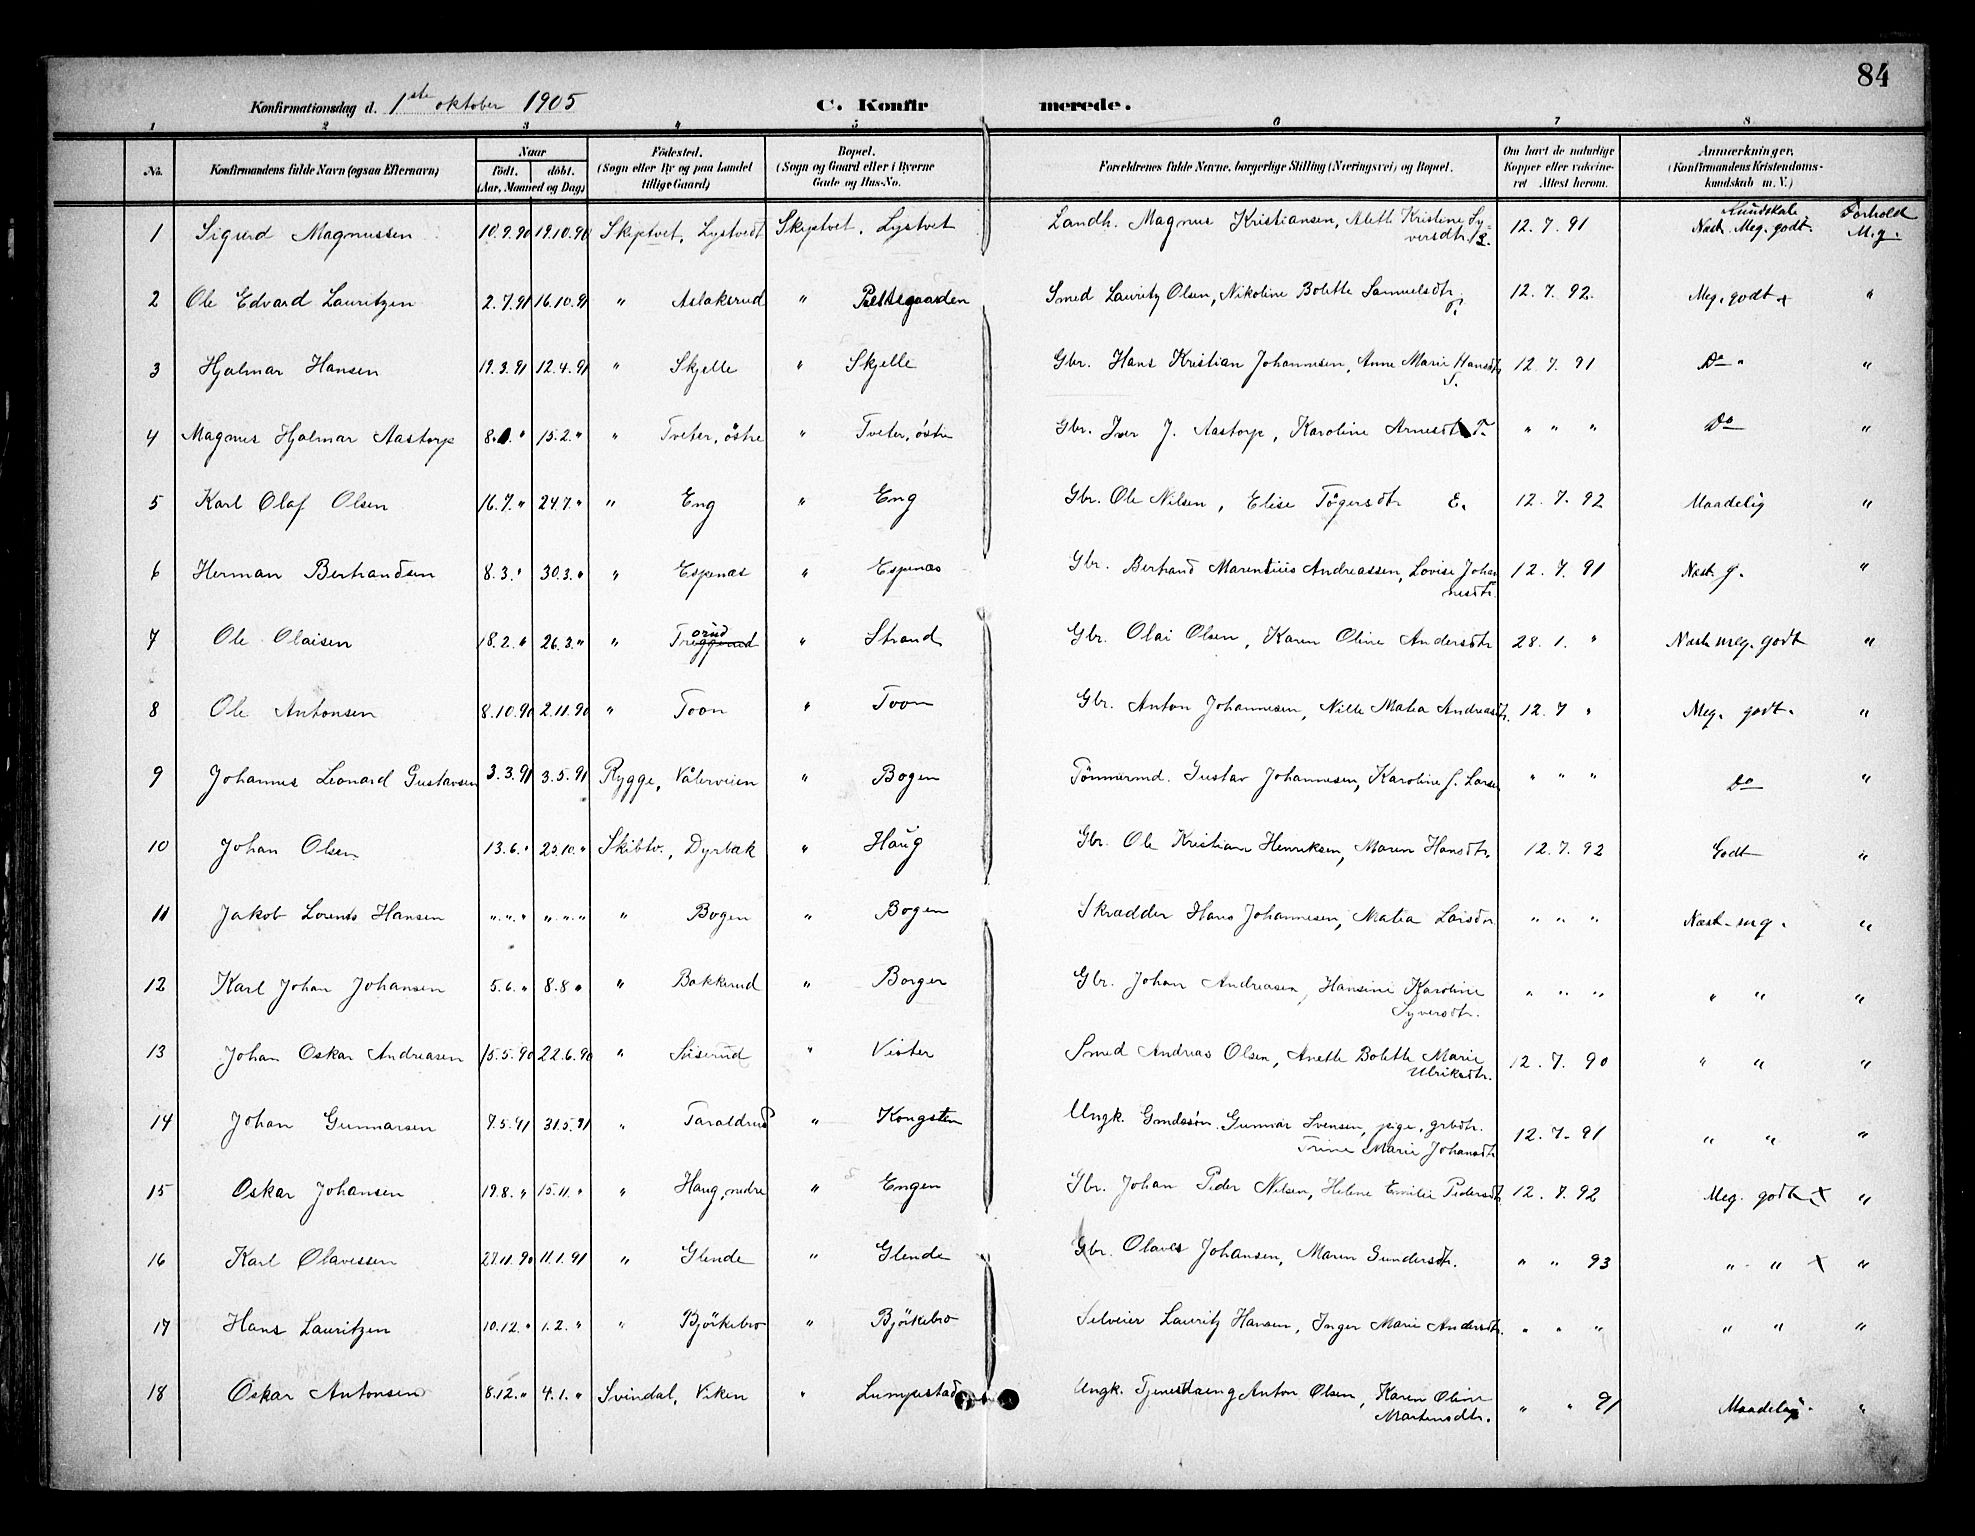 84
Konfirmationsdag d. 1ste oktober 1905 C. Konfirmerede.
1 2 3 4 5 6 7 8
No. Konfirmandens fulde Navn (ogsaa Efternavn) Naar født. døbt. (Aar, Maaned og Dag) Fødested. (Sogn eller By og paa Landet tillige Gaard) Bopæl. (Sogn og Gaard eller i Byerne Gade og Hus-No. Forældrenes fulde Navne, borgerlige Stilling (Næringsvei) og Bopæl. Om havt de naturlige Kopper eller vakcineret Attest herom. Anmærkninger, (Konfirmandens Kristendomskundskab m. V.)
Kundskab Forhold
1 Sigurd Magnussen 10.9.90 19.10.90 Skiptvet, Lystvedt Skiptvet, Lystvet Landh. Magnus Kristiansen, Alette Kristine Syversdtr. 12. 7. 91 Næst. Meg. godt. M.g.
2 Ole Edvard Lauritzen 2.7.91 16.10.91 " Aslaksrud " Smed Lauritz Olsen, Nikoline Bolette Samuelsdtr. 12. 7. 92. Meg. godt x "
3 Hjalmar Hansen 19.3.91 12.4.91 " Skjelle " Skjelle Gbr. Hans Kristian Johannesen, Anne Marie Hansdtr. S. 12. 7. 91 Do " "
4 Magnus Hjalmar Aastorp 15.2. " " Tveter, östre " Tveter, östre Gbr. Iver J. Aastorp, Karoline Arnesdtr T. " " " Do "
5 Karl Olaf Olsen 16.7. " 24.7. " " Eng " Eng Gbr. Ole Nilsen, Elise Tögersdtr E. 12. 7. 92 Maadelig "
6 Herman Bertrandsen 8.3. " 30.3. " " Espenæs " Espenæs Gbr. Bertrand Marentius Andreassen, Lovise Johannesdtr. 12. 7. 91 Næst. g. "
7 Ole Olaisen 18.2. " 26.3. " " orud " Strand Gbr. Olai Olsen, Karen Oline Andersdtr 28. 1. " Næst meg. godt "
8 Ole Antonsen 8.10.90 2.11.90 " Toon " Toon Gbr. Anton Johannesen, Nille Matea Andreasdtr. 12. 7 " Meg. godt. "
9 Johannes Leonard Gustavsen 3.3.91 3.5.91 Rygge, Vålerveien " Bogen Tömmermd. Gustav Johannesen, Karoline f. Larsen " " " Do "
10 Johan Olsen 13.6. " 25.10. " Skibtv., Dyrbak " Haug Gbr. Ole Kristian Henriksen, Maren Hansdtr. 12. 7. 92 Godt "
11 Jakob Lorents Hansen " " " " " " " Bogen " Bogen Skrædder Hans Johannesen, Matea Larsdtr " " " Næst. mg. "
12 Karl Johan Johansen 5.6. " 8.8 " " Bakkerud " Borger Gbr. Johan Andreasen, Hansine Karoline Syversdtr. " " " " " "
13 Johan Oskar Andreasen 15.5.90 22.6.90 " Siserud " Vister Smed Andreas Olsen, Anette Bolette Marie Ulriksdtr. 12. 7. 90 " " "
14 Johan Gunnarsen 7.5.91 31.5.91 " Taraldrud " Kongsten Ungk. Grmdssön. Gunnar Svensen, pige, grbdtr. Trine Marie Johansdtr 12. 7. 91 " " "
15 Oskar Johansen 19.8. " 15.11. " " Haug, nedre " Engen Gbr. Johan Peder Nilsen, Helene Emilie Pedersdtr 12. 7. 92 Meg. godt x "
16 Karl Olavessen 27.11.90 11.1.91 " Glende " Glende Gbr. Olaves Johansen, Maren Gundersdtr. " " 93 " " x "
17 Hans Lauritzen 10.12. " 1.2. " " Björkebro " Björkebro Selveier Lauritz Hansen, Inger Marie Andersdtr. " " " " " "
18 Oskar Antonsen 8.12. " 4.1. " Svindal, Viken " Lumpestad Ungk. Tjenestdreng Anton Olsen, Karen Oline Martensdtr. " " 91 Maadelig. "